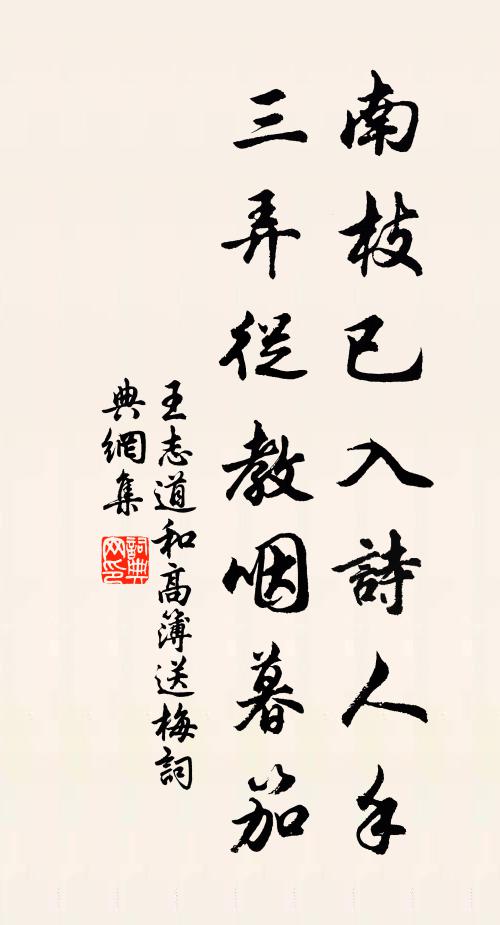 南枝已入詩人手
三弄從教咽暮笳
王志道和高簿送梅詞
典網集
詞典网印